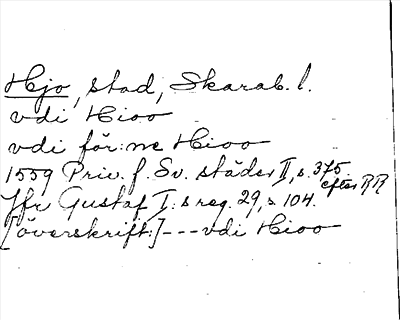 Hjo, stad, Skarab. l.
vdi Hioo
vdi för:ne Hioo
1559 Priv. f. Sv. städer II, s. 375
efter RR
Jfr Gustaf I:s reg. 29, s. 104.
[överskrift:] --- vdi Hioo